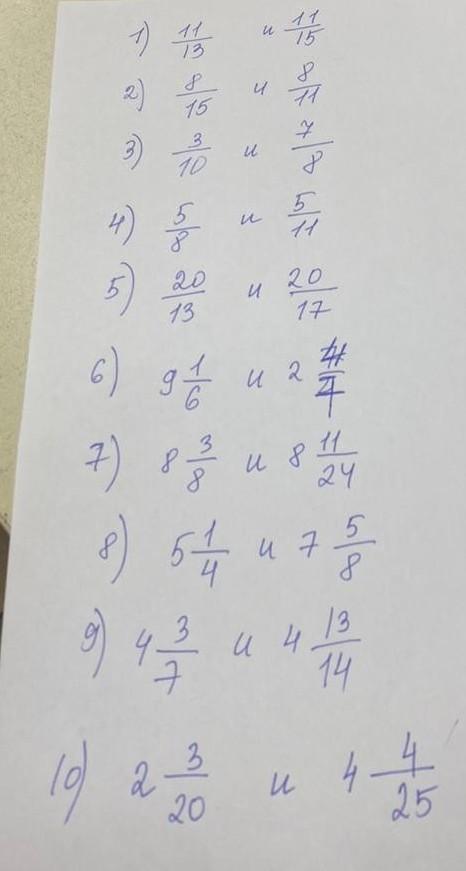 1) 11/13 и 11/15
2) 8/15 и 8/11
3) 3/10 и 7/8
4) 5/8 и 5/11
5) 20/13 и 20/17
6) 9 1/6 и 2
7) 8 3/8 и 8 11/24
8) 5 1/4 и 7 5/8
9) 4 3/7 и 4 13/14
10) 2 3/20 и 4 4/25